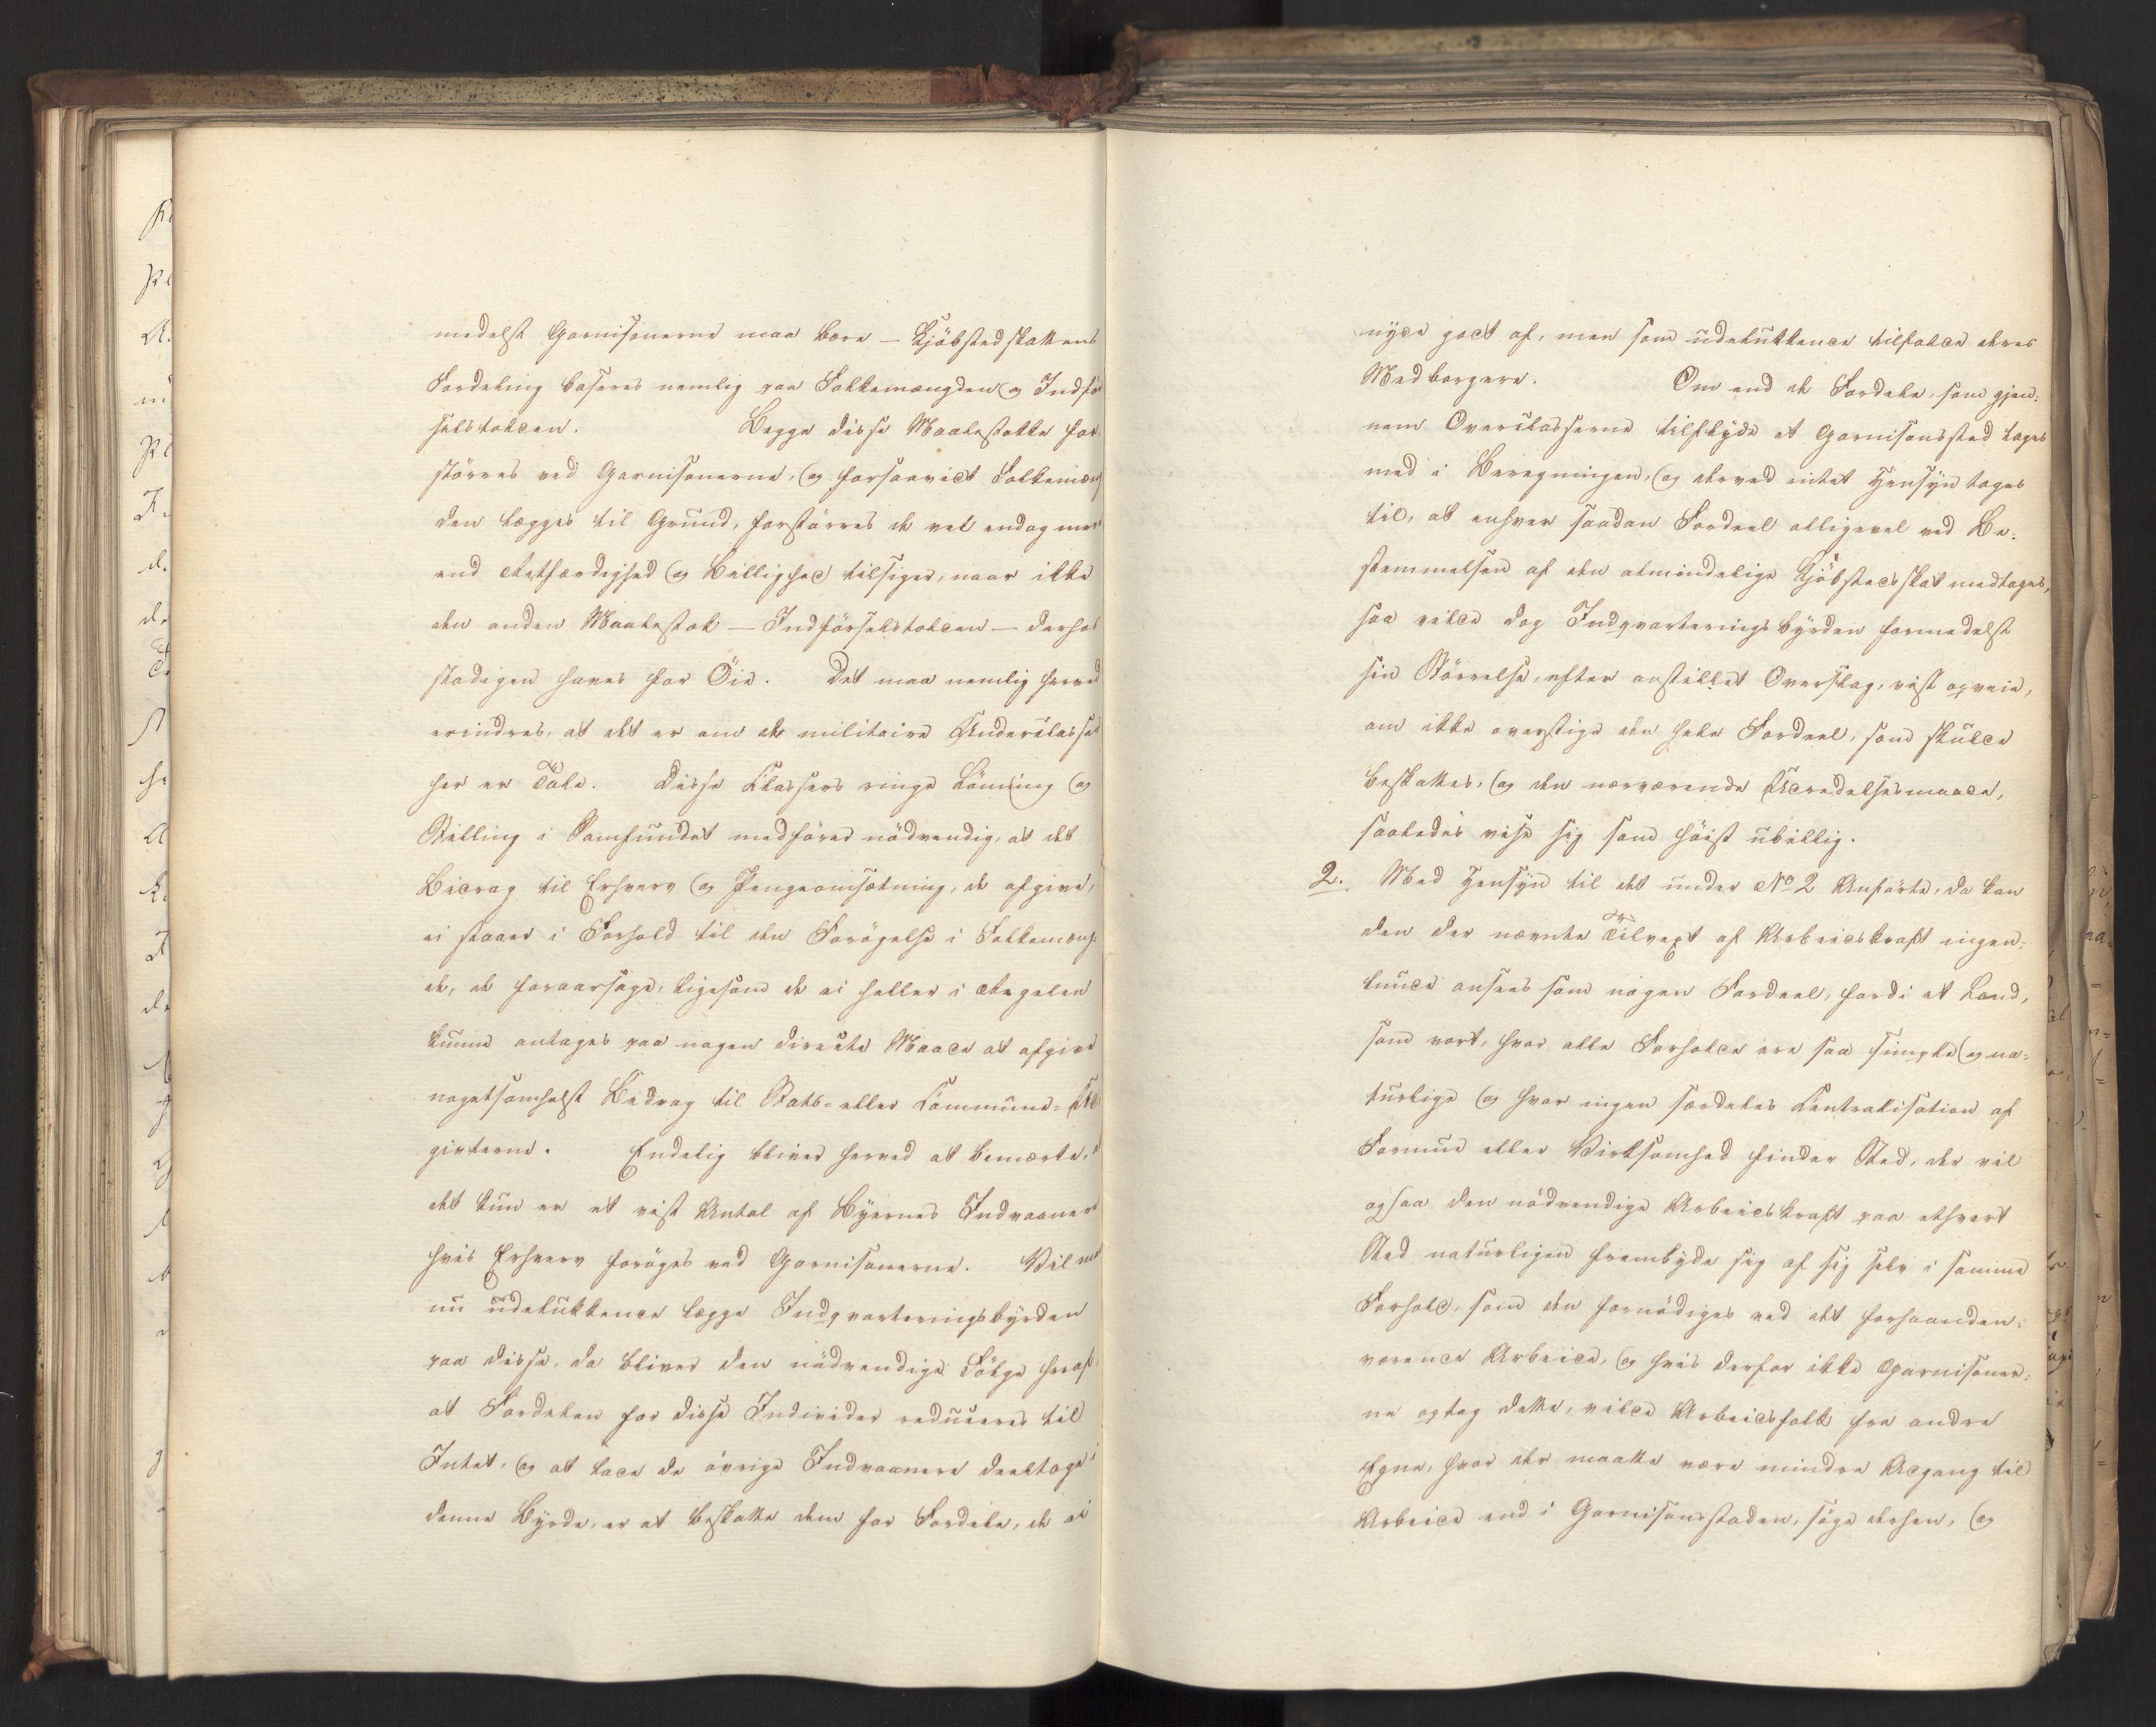 medelst Garnisonerne maa bære – Kjöbstedskattens
Fordeling baseres nemlig paa Folkemængden og Indför
selstolden. Begge disse Maalestokke for,
störres ved Garnisonerne, og forsaavidt Folkemæng
den lægges til Grund, forstörres de vel endog mere
end Retfærdighed og Billighed tilsiger, naar ikke
den anden Maalestok – Indförselstolden – derhos
stadigen haves for Öie. Det maa nemlig herved
erindres, at det er om de militaire Underclasser
her er Tale. Disse Klassers ringe Lönning og
Stilling i Samfundet medförer nödvendig, at det
Bidrag til Erhverv og Pengeomsætning, de afgive,
ei staaer i Forhold til den Forögelse i Folkemæng-
de, de foraarsage, ligesom de ei heller i Regelen
kunne antages paa nogen directe Maade at afgive
nogetsomhelst Bidrag til Stats- eller Commune-Ud
givterne. Endelig bliver herved at bemærke,
det kun er et vist Antal af Byernes Indvaanere
hvis Erhverv foröges ved Garnisonerne. Vil man
nu udelukkende lægge Indqvarteringsbyrden
paa disse, da bliver den nödvendige Fölge heraf,
at Fordelen for disse Individer reduceres til
Intet, og at lade de övrige Indvaanere deeltage i
denne Byrde, er at beskatte dem for Fordele, de ei
nyde godt af, men som udelukkende tilfalde deres
Medborgere. Om end de Fordele, som gjen-
nem Overclasserne tilflyde et Garnisonssted tages
med i Beregningen, og derved intet Hensyn tages
til, at enhver saadan Fordeel alligevel ved Be-
stemmelsen af den almindelige Kjöbstedsskat medtages,
saa vilde dog Indqvarteringsbyrden formedelst
sin Störrelse, efter anstillet Overslag, vist opveie,
om ikke overstige den hele Fordeel, som skulde
beskattes, og den nærværende Udredelsesmaade,
saaledes vise sig som höist ubillig.
2. Med Hensyn til det under No 2 Anförte, da kan
den der nævnte Tilvext af Arbeidskraft ingen-
lunde ansees som nogen Fordeel, fordi et Land,
som vort, hvor alle Forholde ere saa simple og na-
turlige og hvor ingen særdeles Centralisation af
Formue eller Virksomhed finder Sted, der vil
ogsaa den nödvendige Arbeidskraft paa ethvert
Sted naturligen frembyde sig af sig selv i samme
Forhold, som den fornödiges ved det forhaanden-
værende Arbeide, og hvis derfor ikke Garnisoner-
ne optog dette, vilde Arbeidsfolk fra andre
Egne, hvor der maatte være mindre Adgang til
Arbeide end i Garnisonsstaden, söge derhen, og